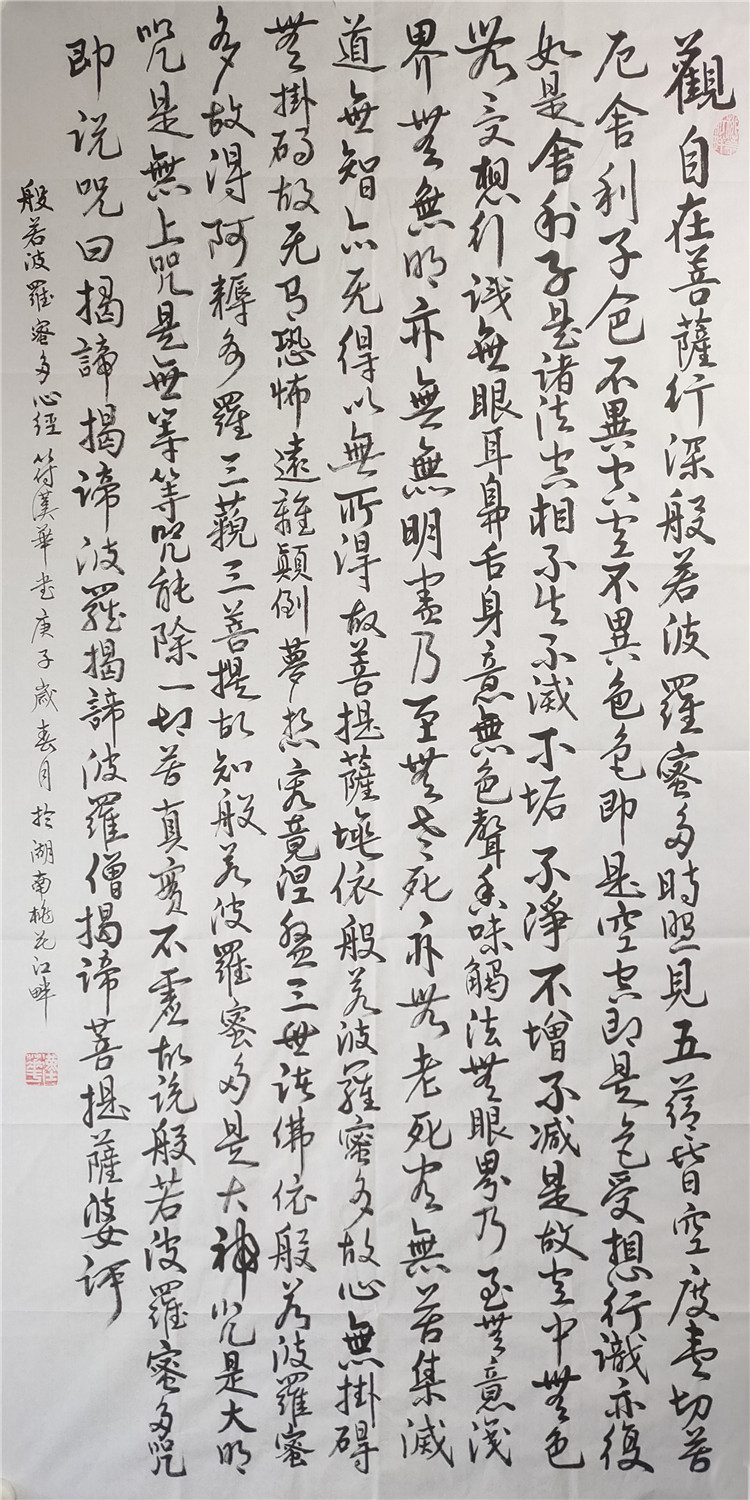 觀自在菩薩行深般若波羅蜜多時照見五蘊皆空度盡切苦
厄舍利子色不異空空不異色色即是空空即是色受想行識亦復
如是舍利子是諸法空相不生不滅不垢不淨不增不減是故空中無色
無受想行識無眼耳鼻舌身意無色聲香味觸法無眼界乃至無意識
界無無明亦無無明盡乃至無老死亦無老死盡無苦集滅
道無智亦无得以無所得故菩提薩埵依般若波羅蜜多故心無掛碍
無掛碍故无有恐怖遠離顛倒夢想究竟涅盤三世諸佛依般若波羅蜜
多故得阿耨多羅三藐三菩提故知般若波羅蜜多是大神咒是大明
咒是無上咒是無等等咒能除一切苦真實不虛故说般若波羅蜜多咒
即说咒曰揭諦揭諦波羅揭諦波羅僧揭諦菩提薩婆訶
般若波羅蜜多心經 符漢華书庚子歲春月於湖南桃花江畔